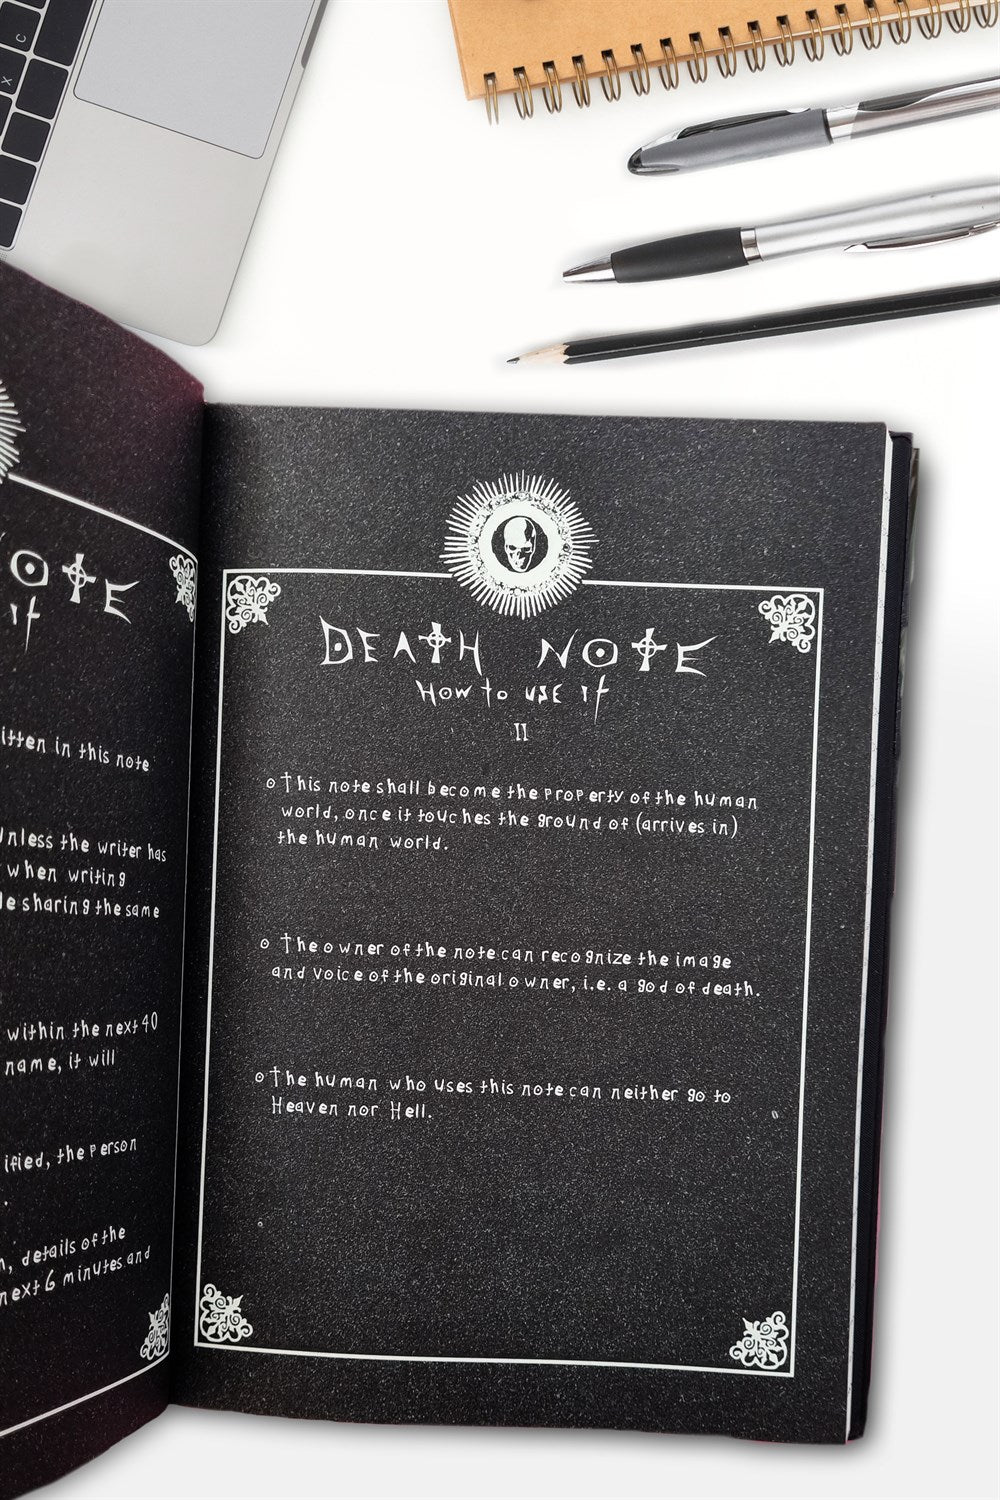 C
X
OTE
it
itten in this note
Unless the writer has
when writing
le sharing the same
within the next 40
name, it will
ified, the person
details of the
next 6 minutes and
DEATH NOTE
How to use it
II
This note shall become the property of the human
world, once it touches the ground of (arrives in)
the human world.
The owner of the note can recognize the image
and voice of the original owner, i.e. a god of death.
The human who uses this note can neither go to
Heaven nor Hell.